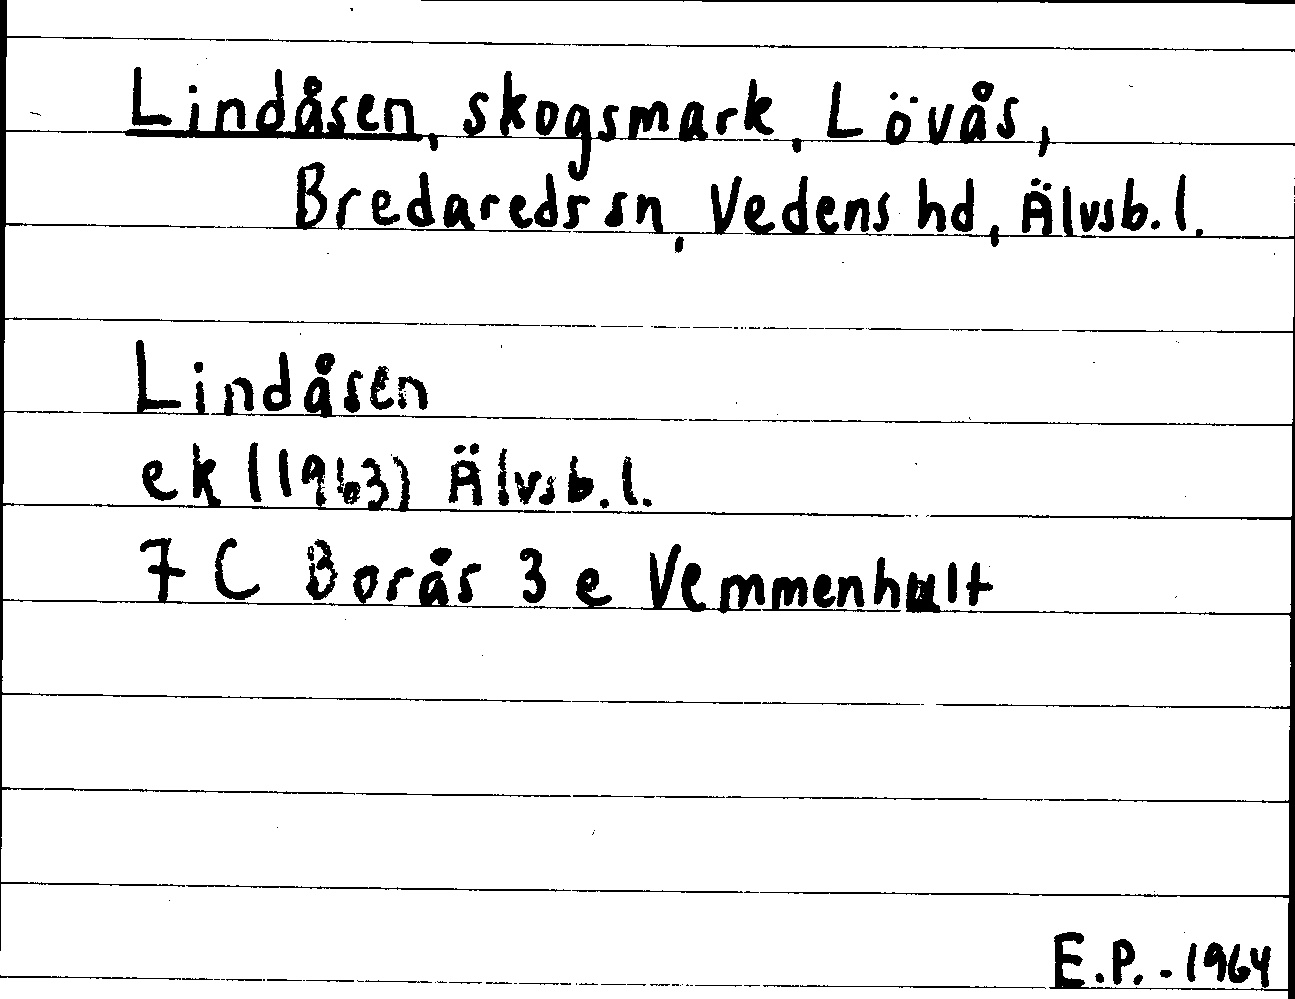 Lindåsen, skogsmark, Lövås,
Bredareds sn, Vedens hd, Älvsb. l.
Lindåsen
ek (1963) Älvsb. l.
7 C Borås 3 e Vemmenhult
E.P. - 1964